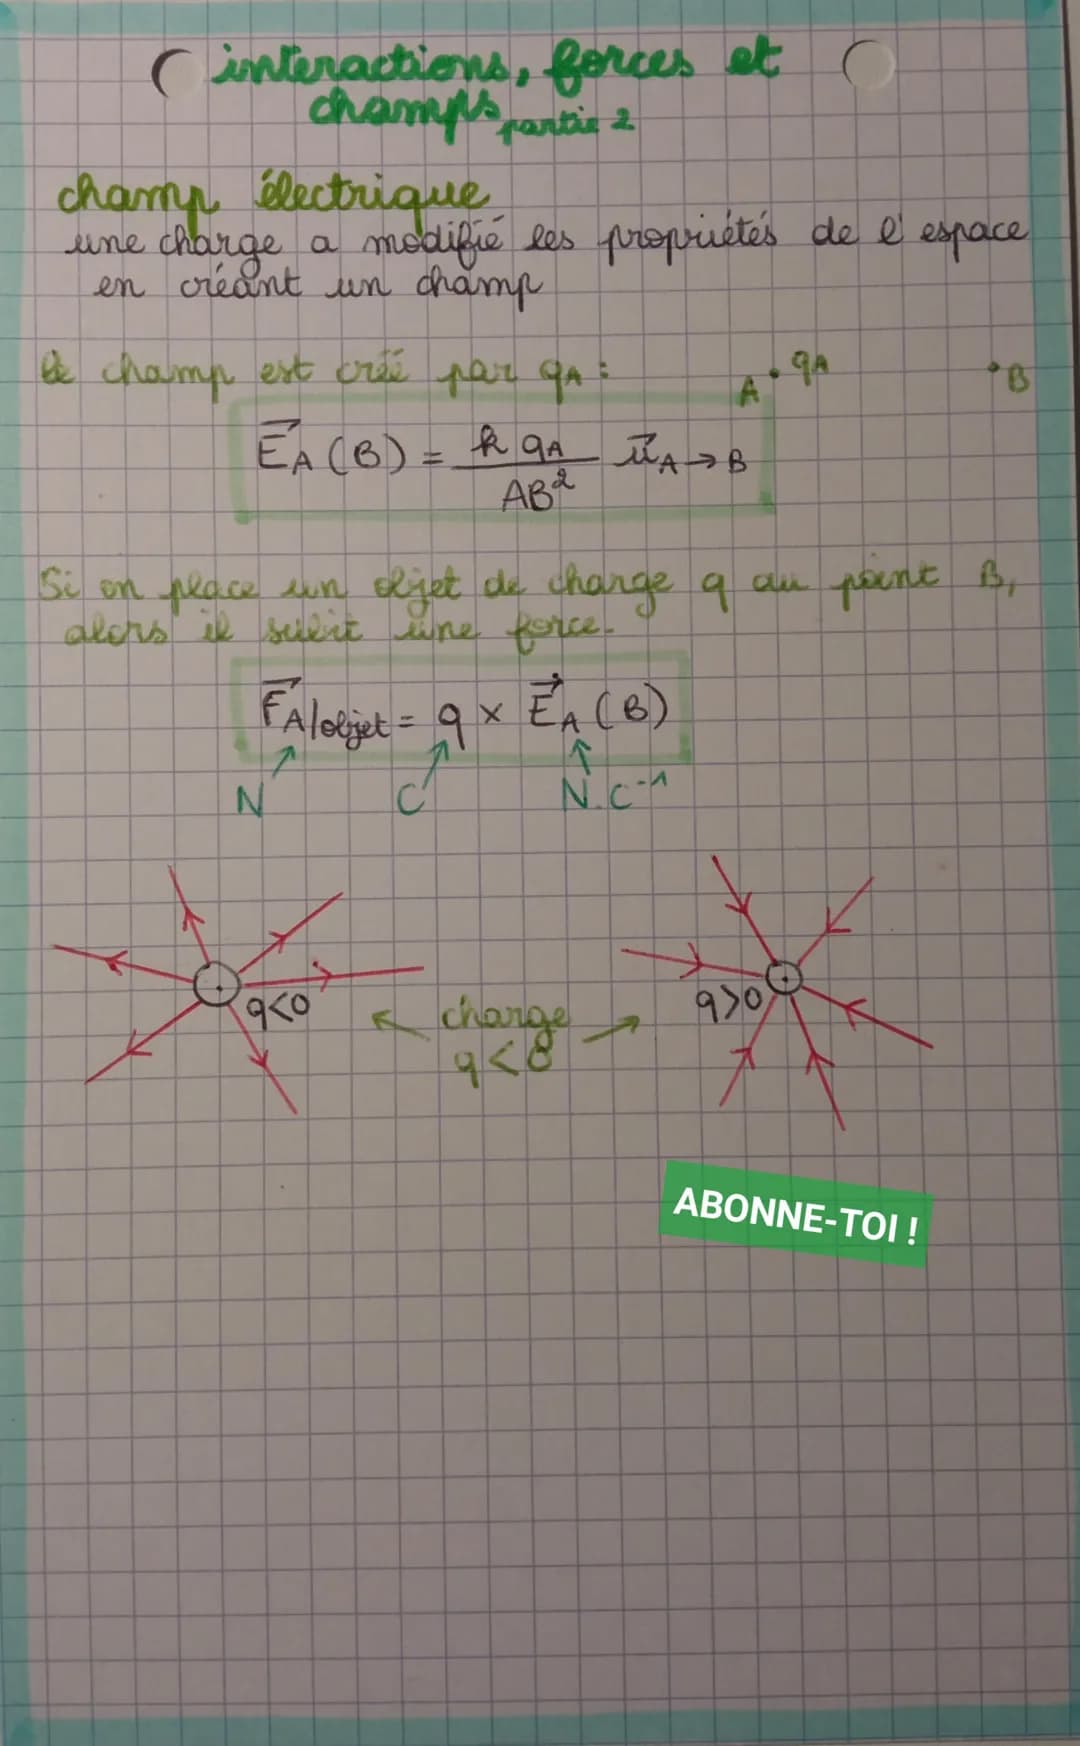 interactions, forces et
champs partie 2
champ électrique
une charge a modifié les propriétés de l'espace
en créant un champ
Le champ est créé par qA :
A • qA • B
E⃗A (B) = k qA / AB² u⃗A→B
Si on place un objet de charge q au point B,
alors il subit une force.
F⃗A/objet = q × E⃗A (B)
N C N.C⁻¹
q<0 q>0
charge
q<0
ABONNE-TOI !